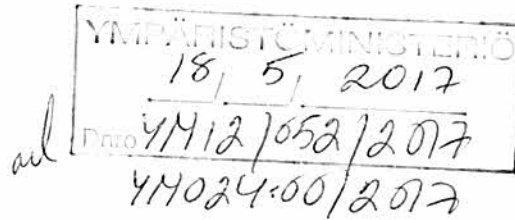 YMPÄRISTÖMINISTERIÖ
18, 5, 2017
Dnro YM12/052/2017
YM024:00/2017